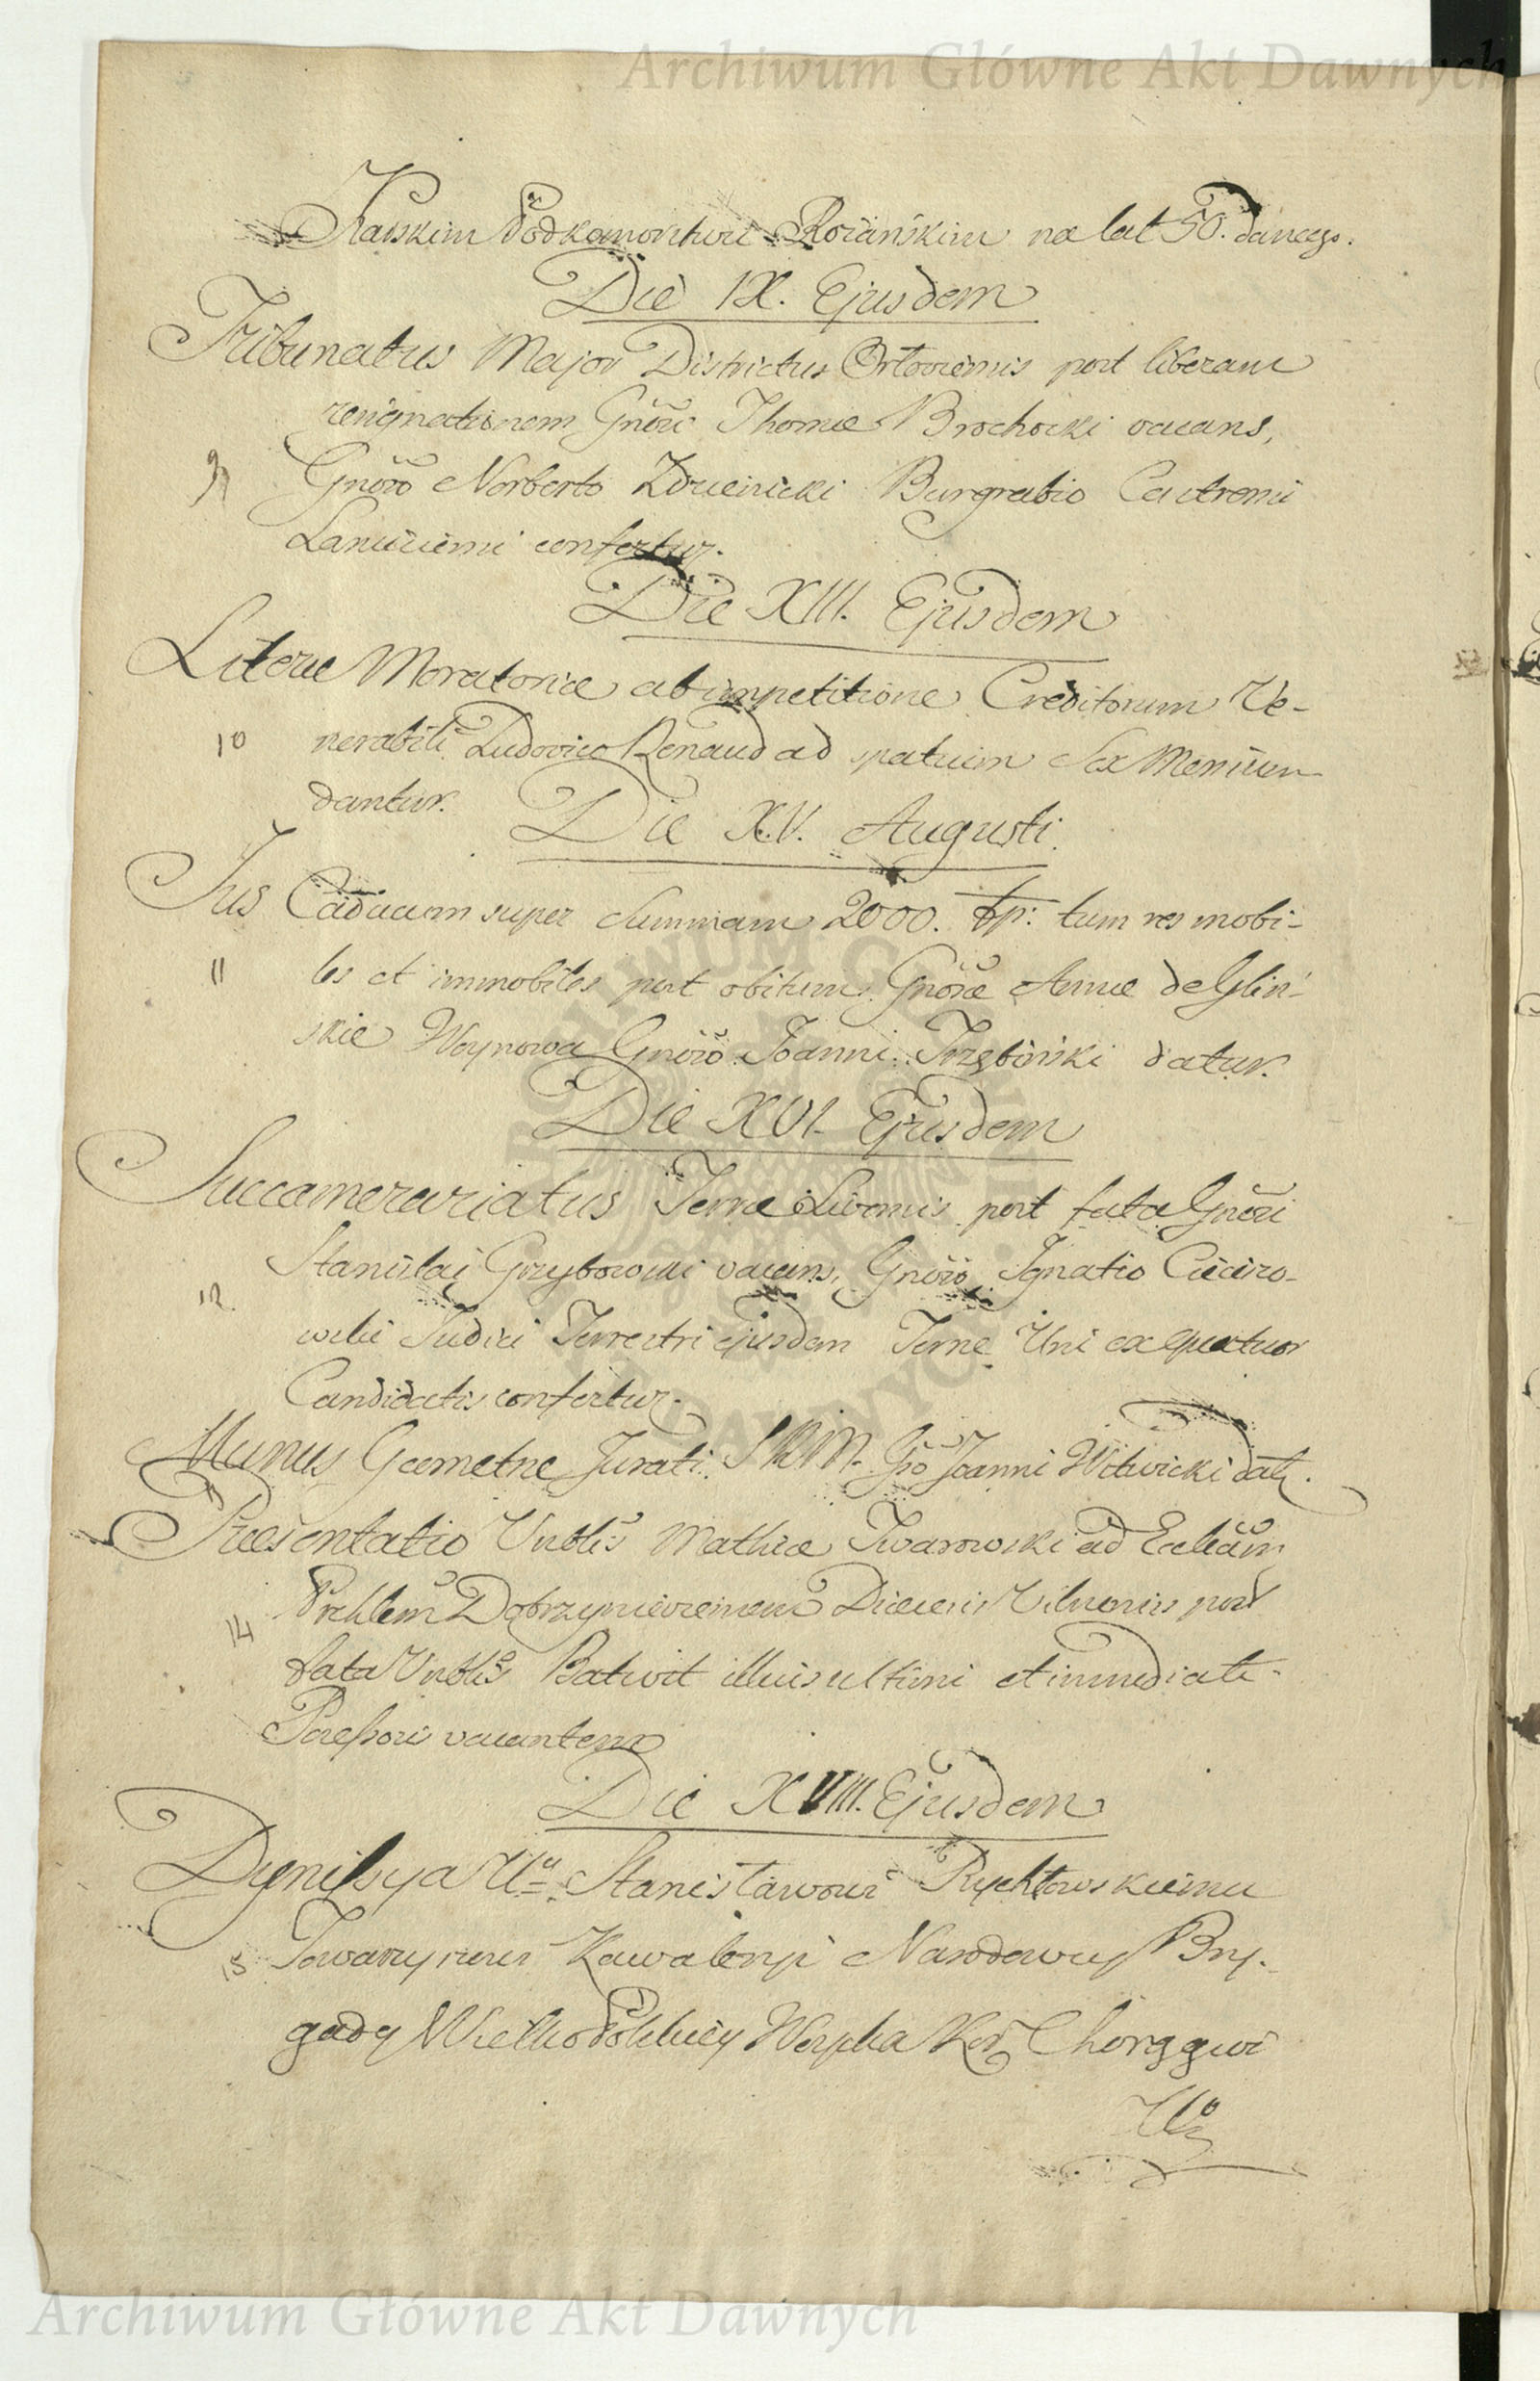 Archiwum Główne Akt Dawnych
Karskim Podkomorstwie Rożańskim na lat 50. danego.
Die IX. Ejusdem
Tribunatus Major Districtus Orłoviensis post liberam
resignationem Gnōsi Thomæ Brochocki vacans,
9 Gnōso Norberto Burgrabio Castrensi
confertur.
Die XIII. Ejusdem
Literæ Moratoriæ ab impetitione Creditorum Ve-
10 nerabili Ludovico Renaud ad spatium Sex Mensium
dantur.
Die XV. Augusti.
Jus Caducum super Summam 2000. fp: tum res mobi-
11 les et immobiles post obitum Gnōsæ Annæ de Gliń-
skie Woynowa Gnōso Joanni Trzebiński datur.
Die XVI. Ejusdem
Succamerariatus Terræ Livensis post fata Gnōsi
Stanislai Grzybowski vacans, Gnōso Ignatio Cieciszo-
12 wski Judici Terrestri ejusdem Terræ Uni ex quatuor
Candidatis confertur.
Munus Geometræ Jurati SRM. Gōo Joanni Witwicki datr.
Præsentatio Vnblis Mathiæ Iwarowski ad Eccliam
14 Prchlem Diæcesis Vilnensis post
fata Vnblis Batwit illius ultimi et immediati
Poressoris vacantem
Die XVIII. Ejusdem
Dymissya Uu Stanisławowi Rychłowskiemu
15 Towarzyszowi Kawaleryi Narodowey Bry-
gady Wielko Polskiey Woyska Kor. Chorągwi
Uo
Archiwum Główne Akt Dawnych